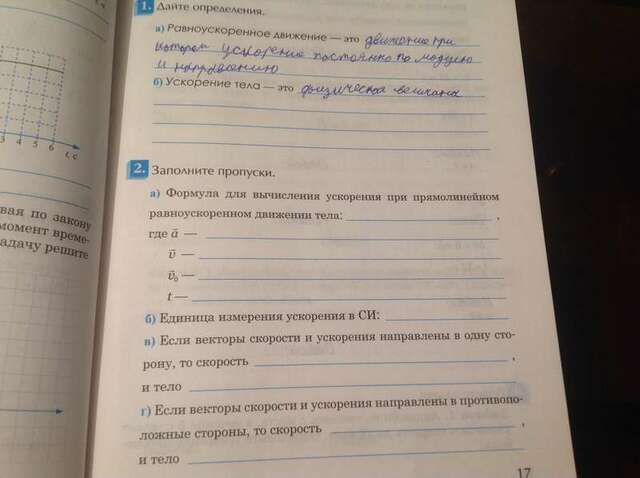 1. Дайте определения.
а) Равноускоренное движение — это движение при
котором ускорение постоянно по модулю
и направлению
б) Ускорение тела — это физическая величина
2. Заполните пропуски.
а) Формула для вычисления ускорения при прямолинейном
равноускоренном движении тела: ,
где a⃗ —
v⃗ —
v⃗₀ —
t —
б) Единица измерения ускорения в СИ:
в) Если векторы скорости и ускорения направлены в одну сто-
рону, то скорость ,
и тело
г) Если векторы скорости и ускорения направлены в противопо-
ложные стороны, то скорость ,
и тело
17
1 2 3 4 5 6 t, с
вая по закону
момент време-
задачу решите